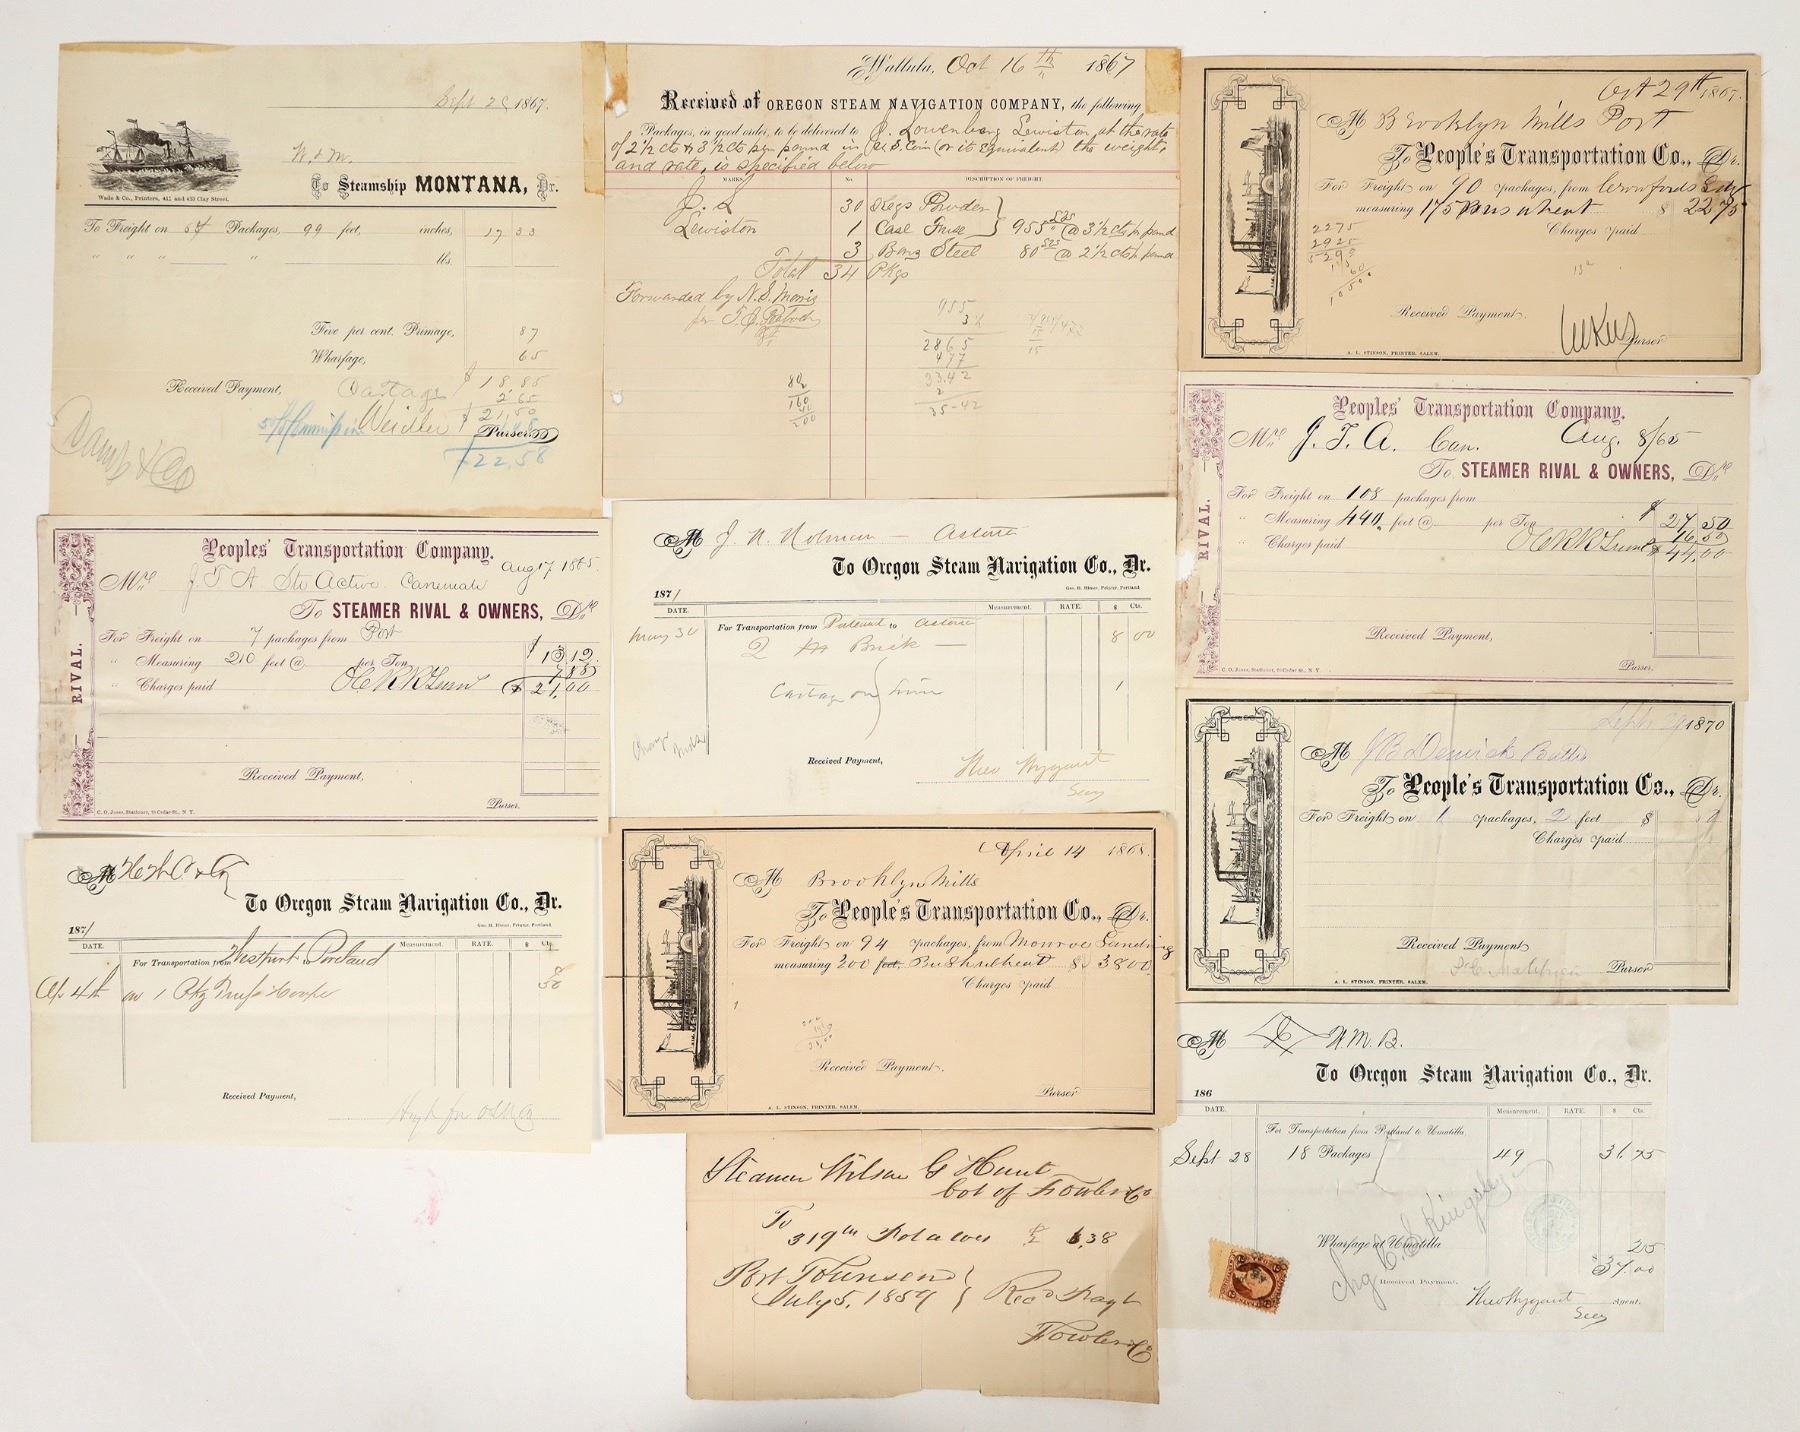 Sept 1867.
W & M.
To Steamship MONTANA, Dr.
Wade & Co., Printers, 411 and 423 Clay Street.
To Freight on Packages, 99 feet, inches, 17 33
" " " " lbs.
Five per cent. Primage, 87
Wharfage, 65
$ 18.85
Received Payment, Cartage 2.65
Weidler $ 21.50
Purser.
22.58
Camp & Co
Wallula, Oct 16th 1867
Received of OREGON STEAM NAVIGATION COMPANY, the following
Packages, in good order, to be delivered to J. Lowenberg Lewiston, at the rate
of 2½ cts & 3½ cts per pound in U.S. Coin (or its Equivalent) the weight,
and rate, is specified below
MARKS. No. DESCRIPTION OF FREIGHT
J. L 30 Kegs Powder
Lewiston 1 Case Fuse 955 lbs @ 3½ cts p pound
3 Bars Steel 80 lbs @ 2½ cts p pound
Total 34 Pkgs
Forwarded by N. S. Morris
per
955
3½
2865
477
33.42
2
35-42
80
160
200
Oct 29th 1867.
M Brooklyn Mills Port
To People's Transportation Co., Dr.
For Freight on 90 packages, from Crawfords
measuring 175 Bus wheat $ 22 75
Charges paid
2275
2925
Received Payment.
Purser
A. L. STINSON, PRINTER, SALEM.
Peoples' Transportation Company.
RIVAL.
Mr J. T. A. Can. Aug. 8/65
To STEAMER RIVAL & OWNERS, Dr
For Freight on 108 packages from
" Measuring 440 feet @ per Ton $ 27 50
" Charges paid 16.50
$ 44,00
Received Payment,
Purser.
C. O. Jones, Stationer, 76 Cedar St., N. Y.
Peoples' Transportation Company.
RIVAL.
Aug 17 1865.
Mr J T A Str Active Canemah
To STEAMER RIVAL & OWNERS, Dr
For Freight on 7 packages from Port
" Measuring 210 feet @ per Ton $ 13 12
" Charges paid 7 88
$ 21,00
Received Payment,
Purser.
C. O. Jones, Stationer, 76 Cedar St., N. Y.
M J. N. Holman — Astoria
To Oregon Steam Navigation Co., Dr.
Geo. H. Himes, Printer, Portland.
1871
DATE. Measurement. RATE. $ Cts.
For Transportation from Portland to Astoria
May 30 2 M Brick — 8 00
Cartage on 1
Received Payment,
Theo Wygant
Secy
Sept 1870
M J B Derrick
To People's Transportation Co., Dr.
For Freight on 1 packages, 2 feet $
Charges paid
Received Payment
Purser
A. L. STINSON, PRINTER, SALEM.
M
To Oregon Steam Navigation Co., Dr.
Geo. H. Himes, Printer, Portland.
1871
DATE. Measurement. RATE. $ Cts.
For Transportation from Westport to Portland
Ap 4th on 1 Pkg 50
Received Payment,
April 14 1868.
M Brooklyn Mills
To People's Transportation Co., Dr.
For Freight on 94 packages, from Monroe Landing
measuring 200 feet, Bush wheat $ 38 00
Charges paid
Received Payment.
Purser
A. L. STINSON, PRINTER, SALEM.
M W. M. B.
To Oregon Steam Navigation Co., Dr.
186
DATE. Measurement. RATE. $ Cts.
For Transportation from Portland to Umatilla.
Sept 28 18 Packages 49 36 75
Chg C. S. Kingsley
Wharfage at Umatilla 25
$ 37.00
Received Payment,
Theo Wygant Agent.
Secy
Steamer Wilson G Hunt
Bot of Fowler & Co
To
319 lbs Potatoes $ 6,38
Port Townsend
July 5, 1859 Recd Payt
Fowler & Co